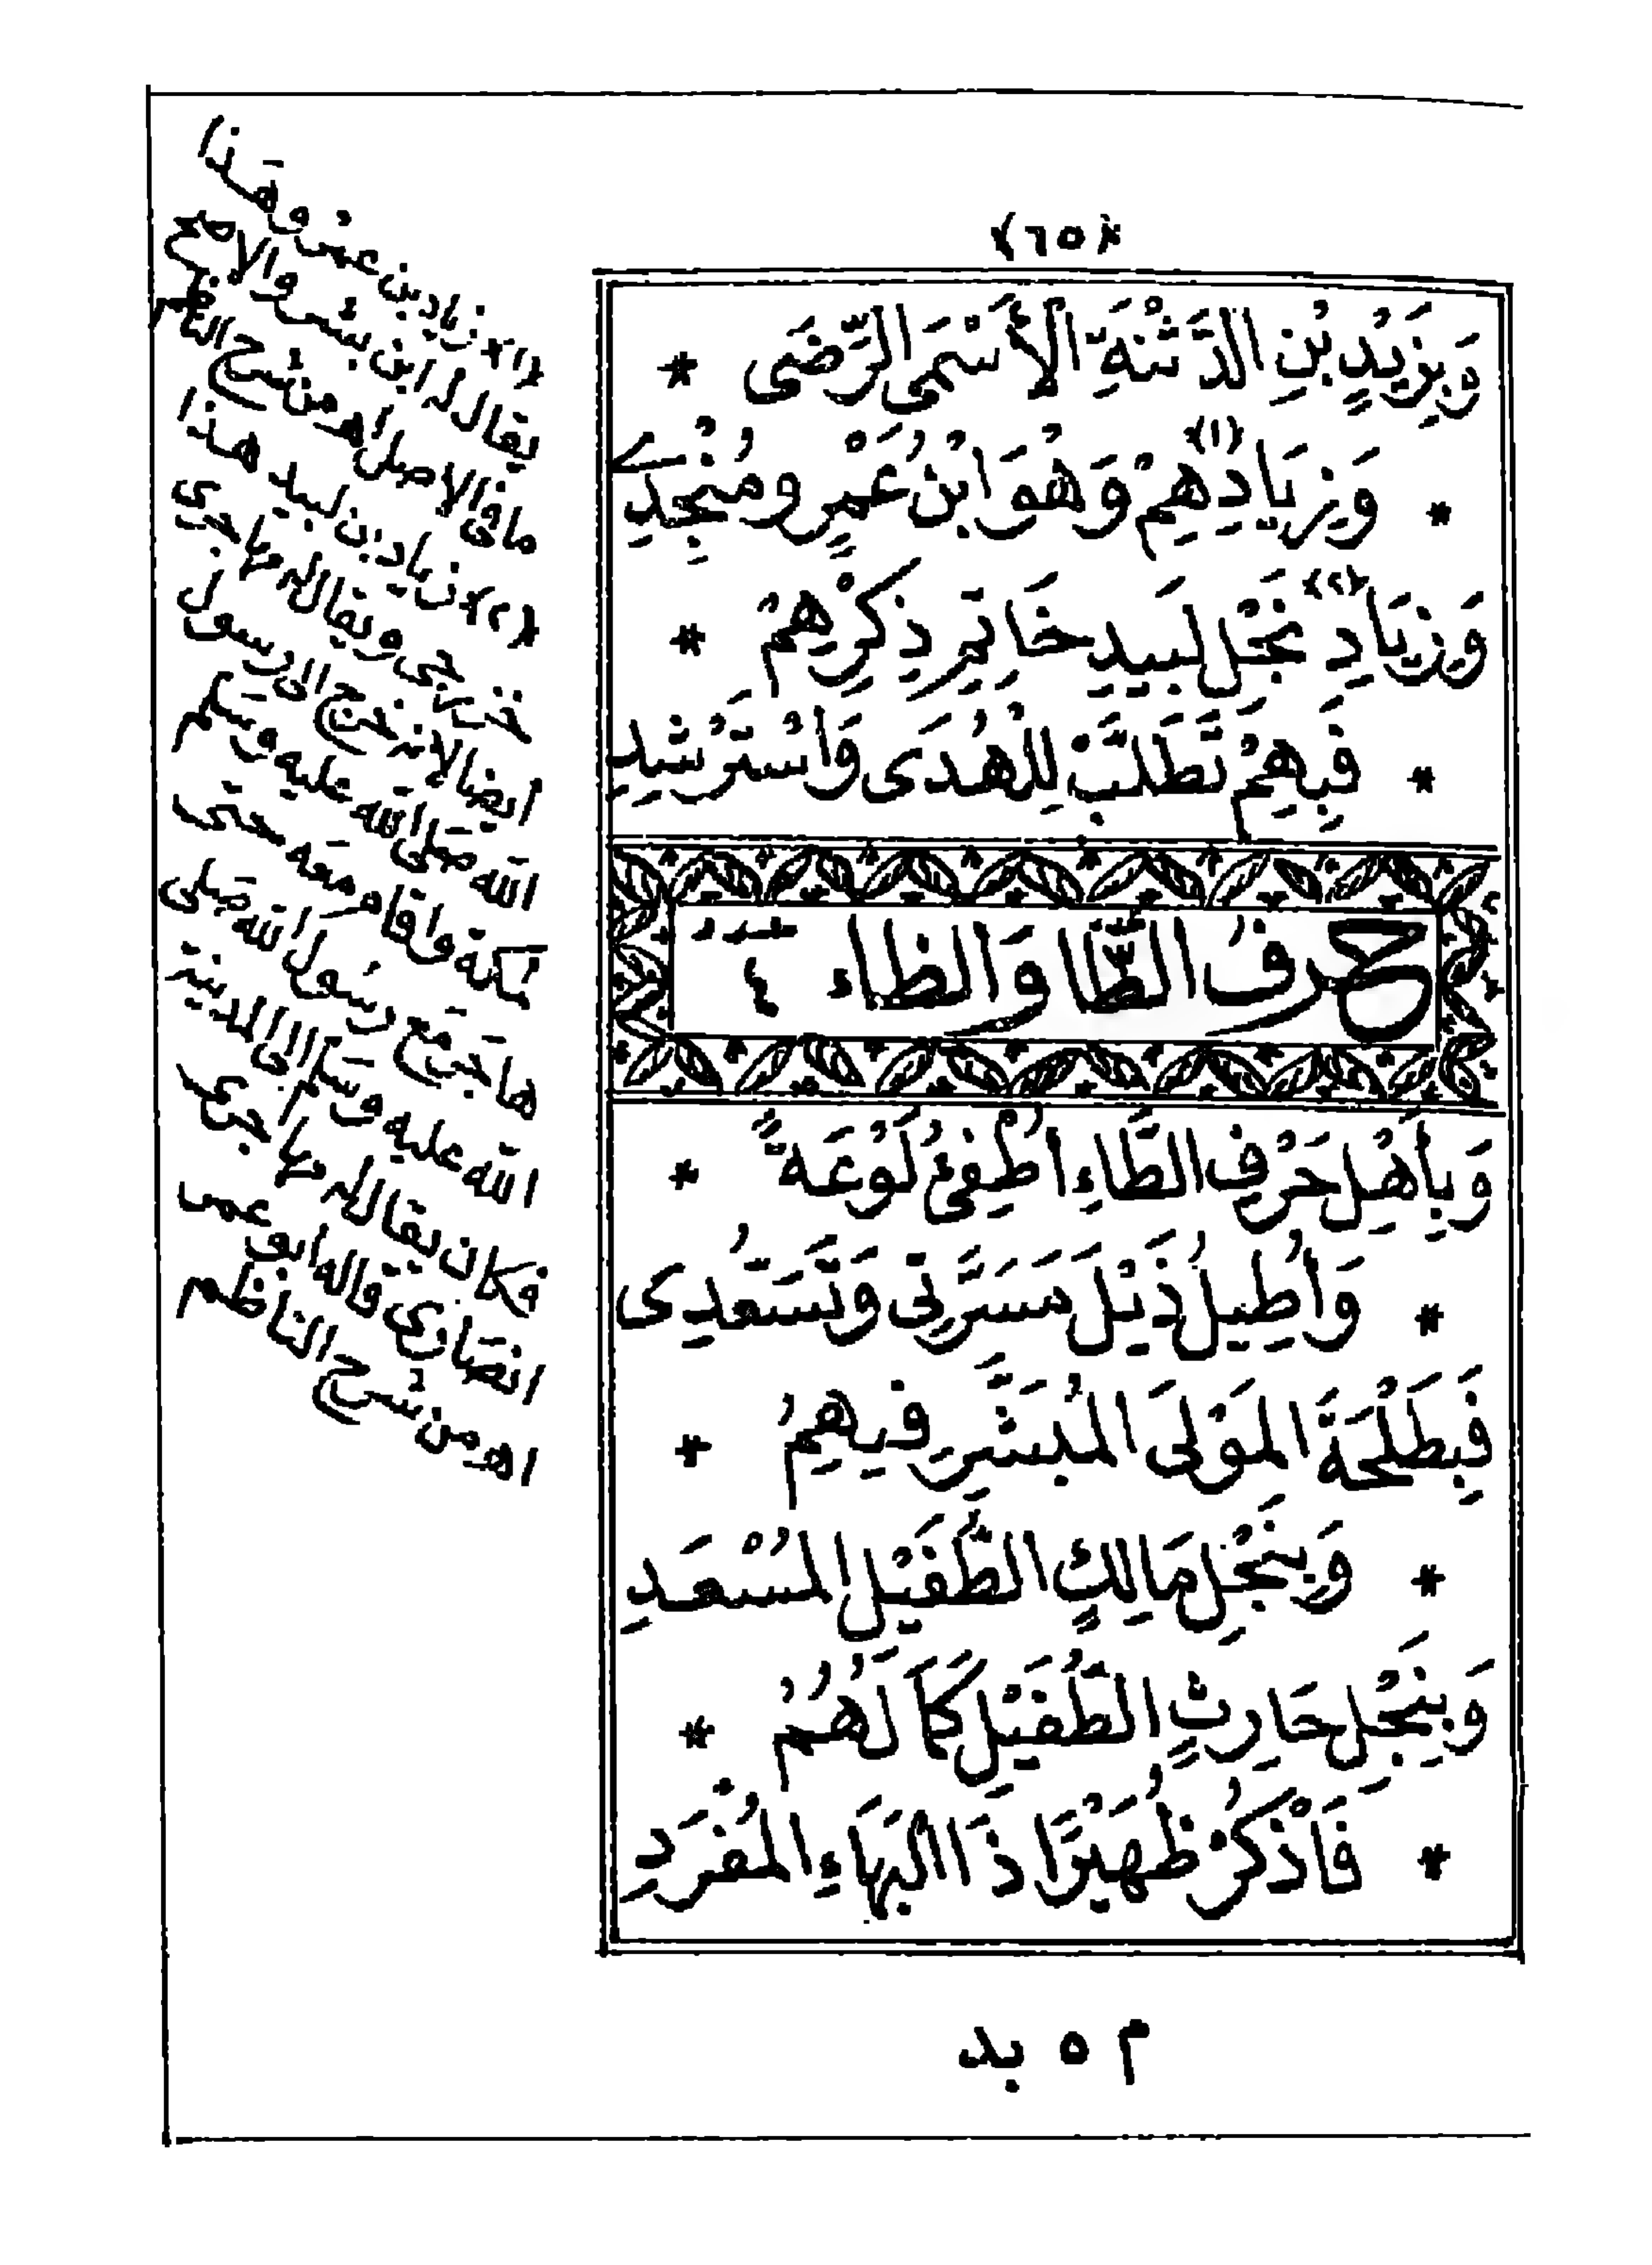 ﴿٦٥﴾
وَبِزَيْدٍ بْنِ الدَّثْنَةِ الْأَسْمَى الرِّضَى *
* وَزِيَادُهِمْ ﴿١﴾ وَهُوَ ابْنُ عُمْرٍ وَمُنْجِدِي
وَزِيَادِ ﴿٢﴾ نَجْلِ لَبِيدِ خَاتِمِ ذِكْرِهِمْ *
* فَبِهِمْ تَطَلَّبْ لِلْهُدَى وَاسْتَرْشِدِ
حرفُ الطَّا ٣ وَالظاء ٤
وَبِأَهْلِ حَرْفِ الطَّاءِ أُطْفِئُ لَوْعَةً *
* وَأُطِيلُ ذَيْلَ مَسَرَّتِي وَتَسَعُّدِى
فَبِطَلْحَةَ الْمَوْلَى الْمُبَشَّرِ فِيهِمُ *
* وَبِنَجْلِ مَالِكٍ الطُّفَيْلِ الْمُسْعَدِ
وَبِنَجْلِ حَارِثٍ الطُّفَيْلِ كَمَا لَهُمْ *
* فَاذْكُرْ ظُهَيْرًا ذَا الْبَهَاءِ الْمُفْرَدِ
﴿١﴾ زياد بن عمرو هَذا
يقال له ابن بشر والاصح
ما فى الاصل اهـ من شرح الناظم
﴿٢﴾ زياد بن لبيد هذا
خزرجى ويقال له مهاجرى
ايضا لانه خرج الى رسول
الله صَلى الله عليه وَسَلم
بمكة واقام مَعه حتى
هاجَر مَع رسُول الله صَلى
الله عليه وَسَلم الى المدينة
فكان يقال له مهاجرى
انصَارى قاله ابو عمر
اهـ من شرح الناظم
م ٥ بد